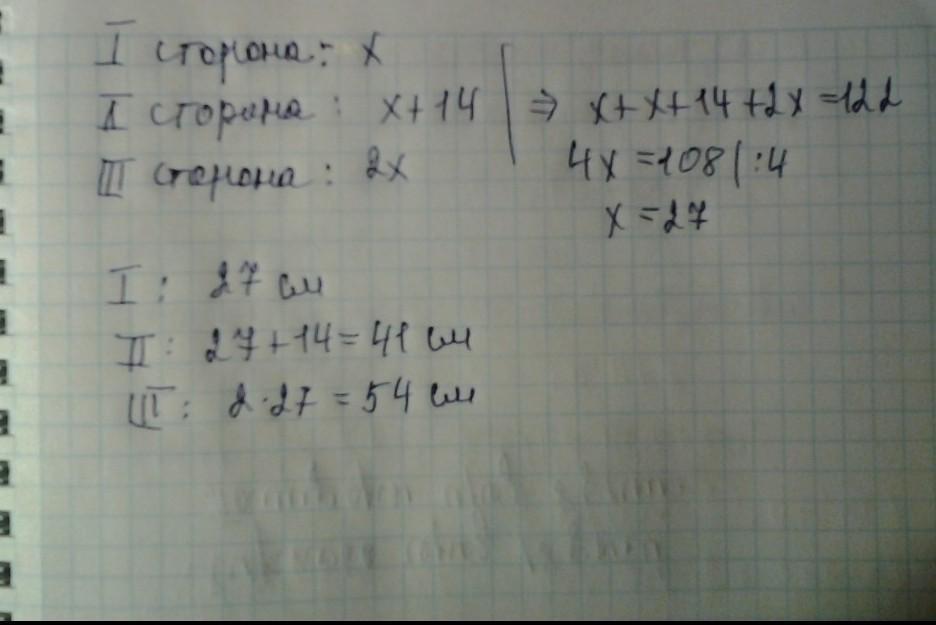 I сторона: x
II сторона: x+14 | ⇒ x+x+14+2x=122
III сторона: 2x
4x=108|:4
x=27
I: 27 см
II: 27+14=41 см
III: 2·27=54 см